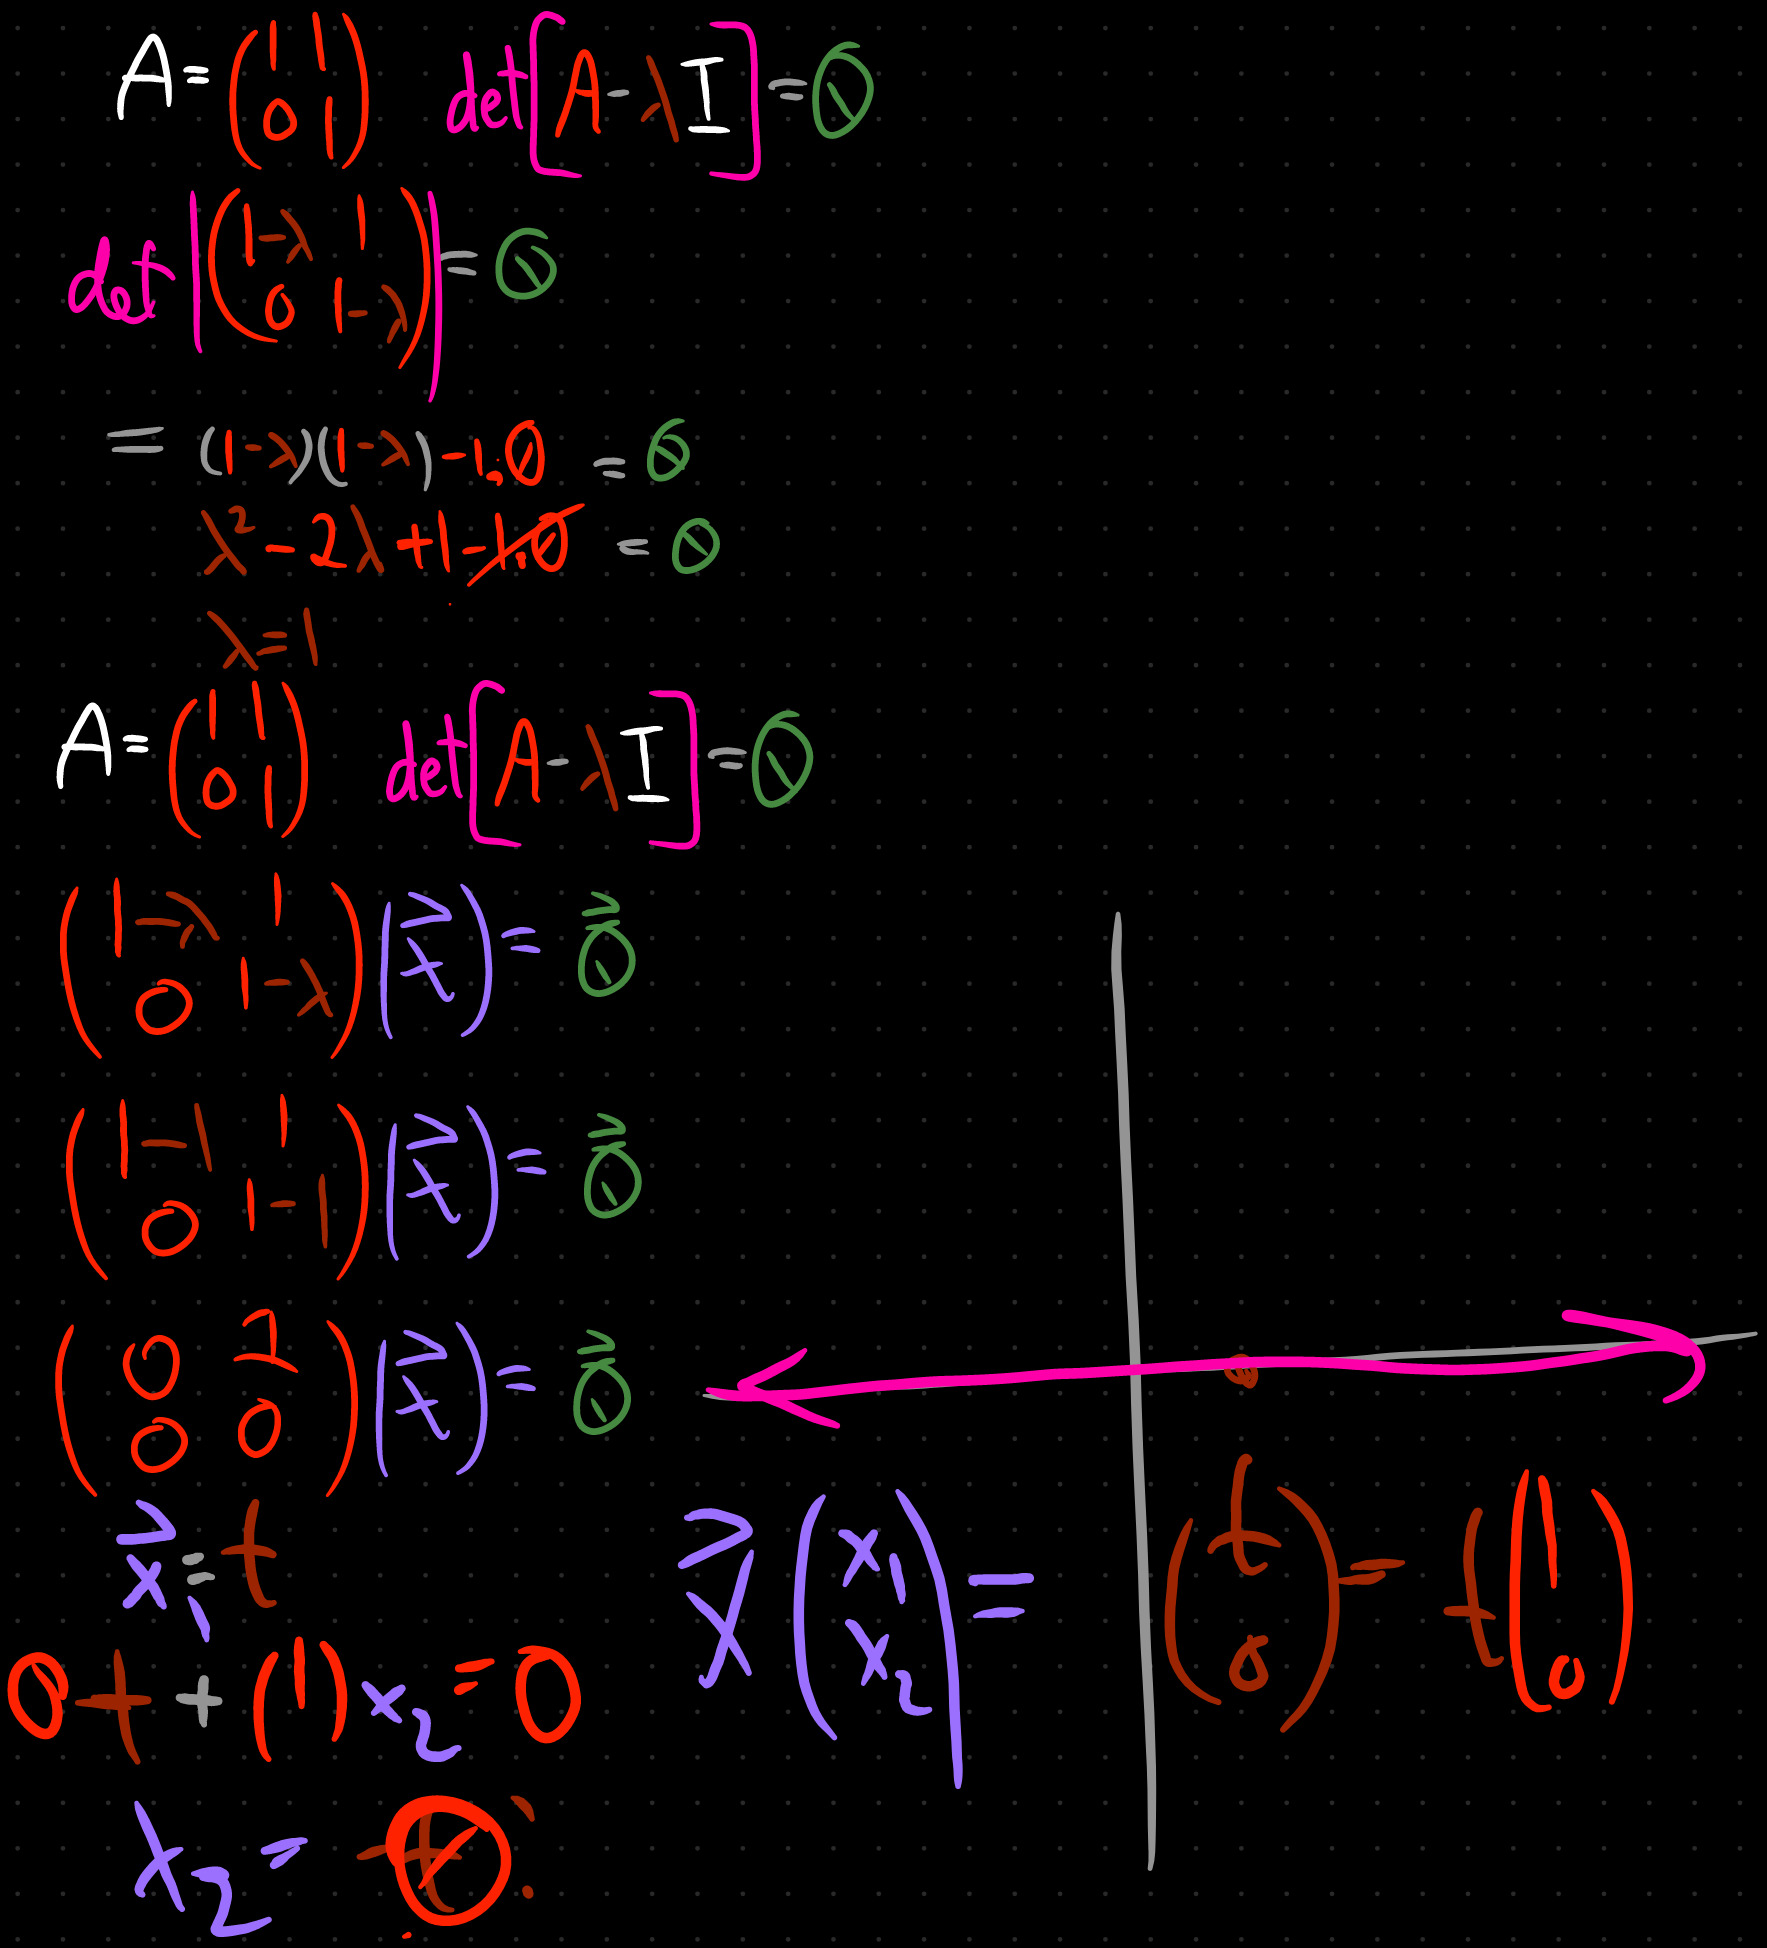 A = (1 1 / 0 1) det[A - λI] = 0
det|(1-λ 1 / 0 1-λ)| = 0
= (1-λ)(1-λ) - 1.0 = 0
λ² - 2λ + 1 - 1.0 = 0
λ = 1
A = (1 1 / 0 1) det[A - λI] = 0
(1-λ 1 / 0 1-λ)(x⃗) = 0⃗
(1-1 1 / 0 1-1)(x⃗) = 0⃗
(0 1 / 0 0)(x⃗) = 0⃗
x⃗₁ = t
x⃗ (x₁ / x₂) = (t / 0) = t(1 / 0)
0t + (1)x₂ = 0
x₂ = 0